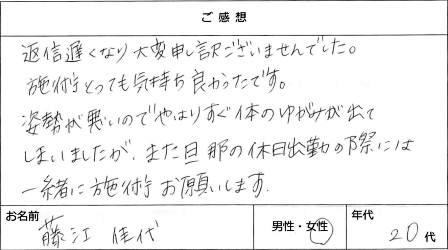 ご感想
返信遅くなり大変申し訳ございませんでした。
施術とっても気持ち良かったです。
姿勢が悪いのでやはりすぐ体のゆがみが出て
しまいましたが、また旦那の休日出勤の際には
一緒に施術お願いします。
お名前 藤江 佳代 男性・女性 年代 20代